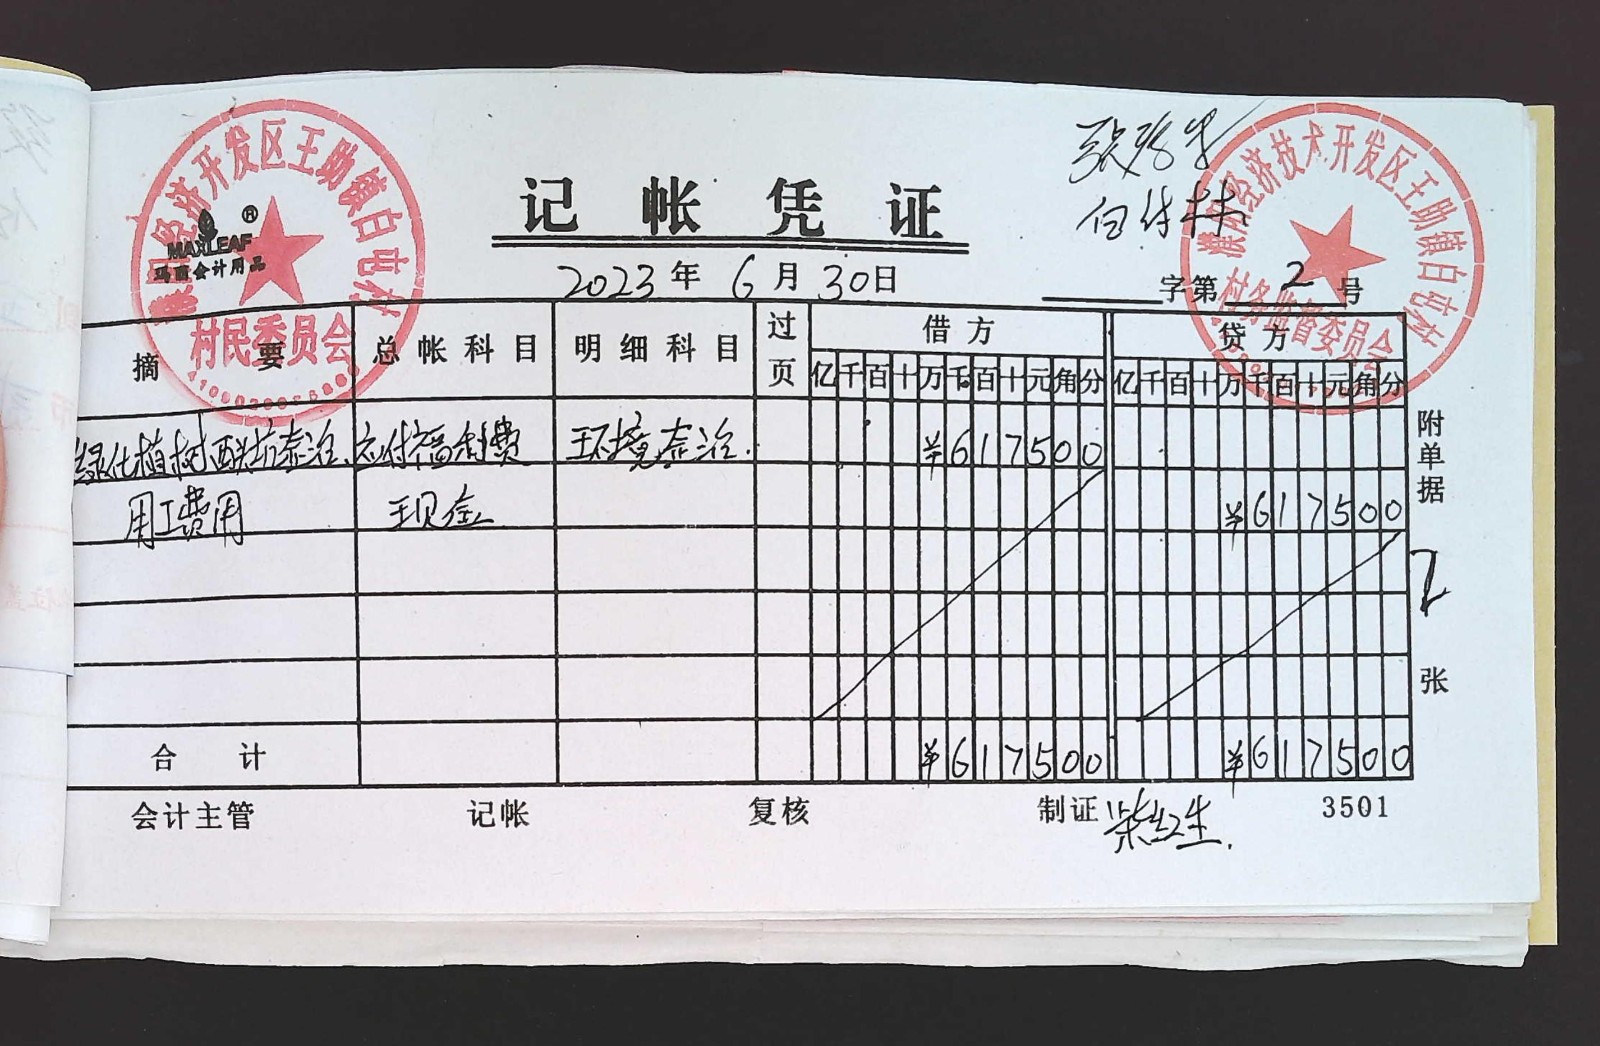 濮阳经济开发区王助镇白屯村
村民委员会
MAXLEAF ®
玛丽会计用品
濮阳经济技术开发区王助镇白屯村
村务监督委员会
记帐凭证
2023年6月30日
字第 2 号
摘要 总帐科目 明细科目 过页 借方 贷方
亿千百十万千百十元角分 亿千百十万千百十元角分
绿化植树 应付福利费 环境 ¥617500
用工费用 现金 ¥617500
合计 ¥617500 ¥617500
附单据 2 张
会计主管 记帐 复核 制证 柴红生. 3501